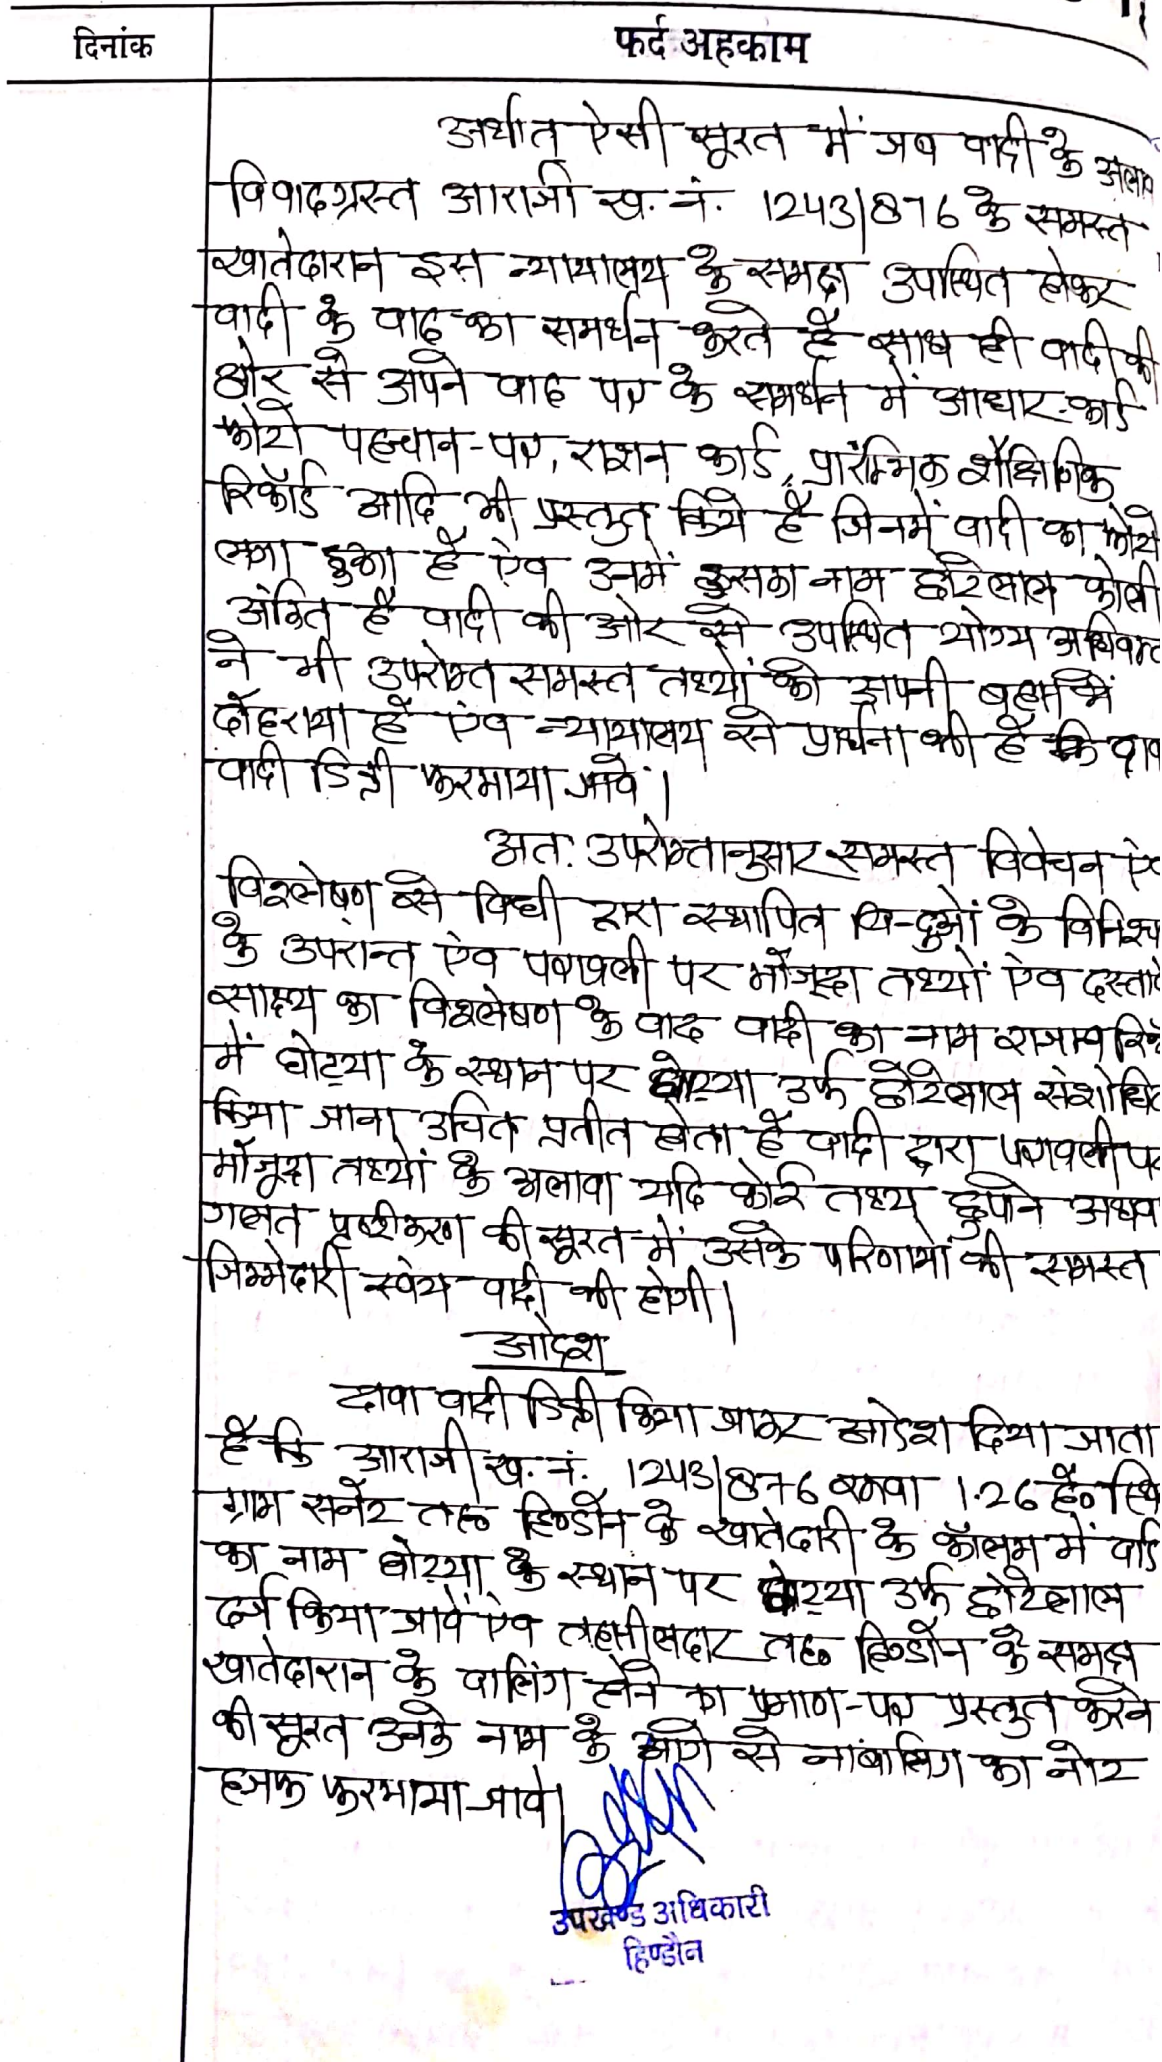 दिनांक
फर्द अहकाम
अर्थात् ऐसी सूरत में जब वादी के अलावा
विवादग्रस्त आराजी ख. नं. 1243/876 के समस्त
खातेदारान इस न्यायालय के समक्ष उपस्थित होकर
वादी के वाद का समर्थन करते है साथ ही वादी की
ओर से अपने वाद पत्र के समर्थन में आधार-कार्ड
फोटो पहचान-पत्र, राशन कार्ड, प्रारंम्भिक शैक्षिणिक
रिकॉर्ड आदि भी प्रस्तुत किये है जिनमें वादी का फोटो
लगा हुआ है ऐव उनमें उसका नाम छोटेलाल कोली
अंकित है वादी की ओर से उपस्थित योग्य अधिवक्ता
ने भी उपरोक्त समस्त तथ्यों को अपनी बहस में
दोहराया है एंव न्यायालय से प्रार्थना की है कि दावा
वादी डिक्री फरमाया जावे।
अतः उपरोक्तानुसार समस्त विवेचन ऐव
विश्लेषण से विधी द्वारा स्थापित बिन्दुओं के विनिश्चय
के उपरान्त ऐव पत्रावली पर मौजूदा तथ्यों ऐव दस्तावे
साक्ष्य का विश्लेषण के बाद वादी का नाम राजस्व रिकॉ
में घोट्या के स्थान पर घोट्या उर्फ छोटेलाल संशोधित
किया जाना उचित प्रतीत होता है वादी द्वारा पत्रावली पर
मौजूदा तथ्यों के अलावा यदि कोई तथ्य छुपाने अथवा
गलत पृष्टीकरण की सूरत में उसके परिणामों की समस्त
जिम्मेदारी स्वंय वादी की होगी।
आदेश
दावा वादी डिक्री किया जाकर आदेश दिया जाता
है कि आराजी ख. नं. 1243/876 रकवा 1.26 है० स्थि
ग्राम सनेट तह० हिण्डौन के खातेदारी के कॉलम में वादी
का नाम घोट्या के स्थान पर घोट्या उर्फ छोटेलाल
दर्ज किया जावे ऐव तहसीलदार तह० हिण्डौन के समक्ष
खातेदारान के बालिंग होने का प्रमाण-पत्र प्रस्तुत करने
की सूरत उनके नाम के आगे से नांबालिग का नोट
हजफ फरमाया जावे।
उपखण्ड अधिकारी
हिण्डौन